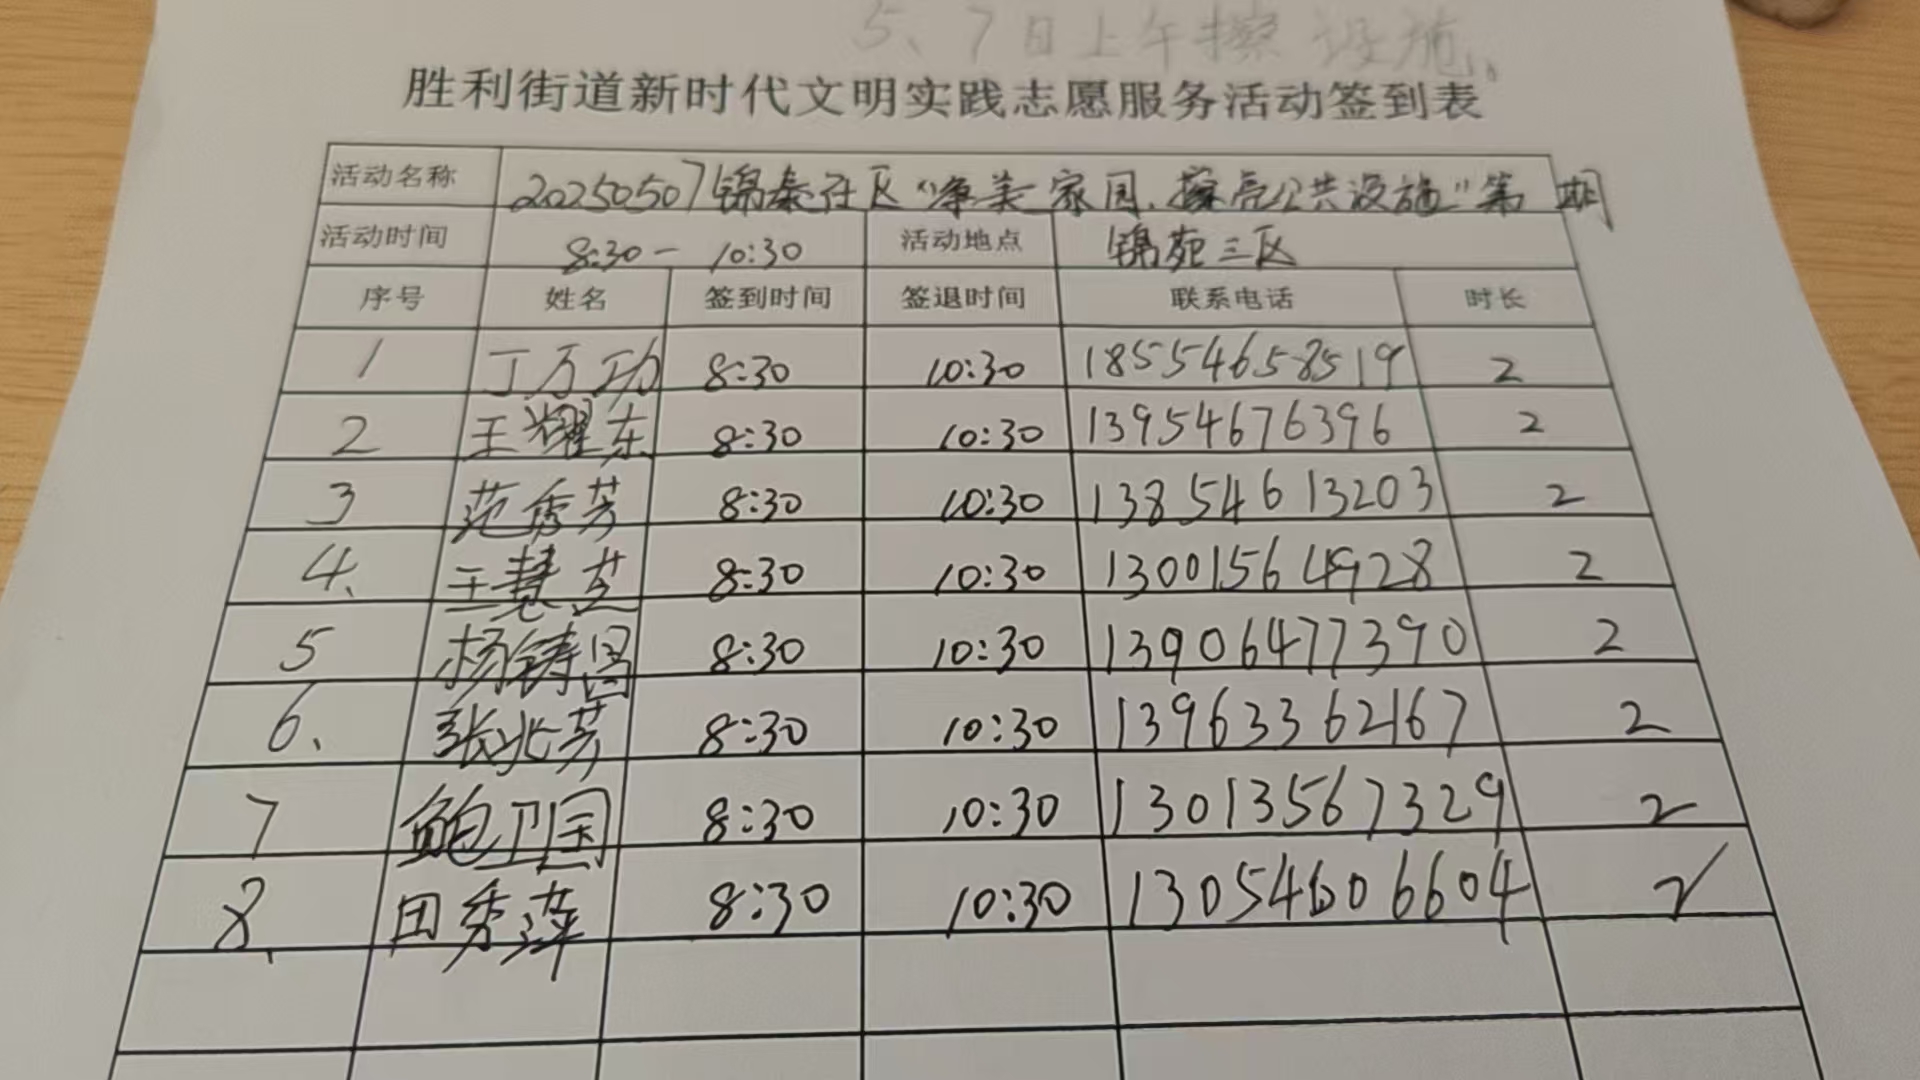 5、7日上午擦设施、
胜利街道新时代文明实践志愿服务活动签到表
活动名称 20250507锦泰社区“净美家园、擦亮公共设施”第 期
活动时间 8:30- 10:30 活动地点 锦苑三区
序号 姓名 签到时间 签退时间 联系电话 时长
1 丁万功 8:30 10:30 18554658519 2
2 王耀东 8:30 10:30 13954676396 2
3 范秀芳 8:30 10:30 13854613203 2
4、 王慧芝 8:30 10:30 13001564928 2
5 杨铸昌 8:30 10:30 13906477390 2
6、 张兆芳 8:30 10:30 13963362167 2
7 鲍卫国 8:30 10:30 13013567329 2
8、 田秀萍 8:30 10:30 13054606604 2